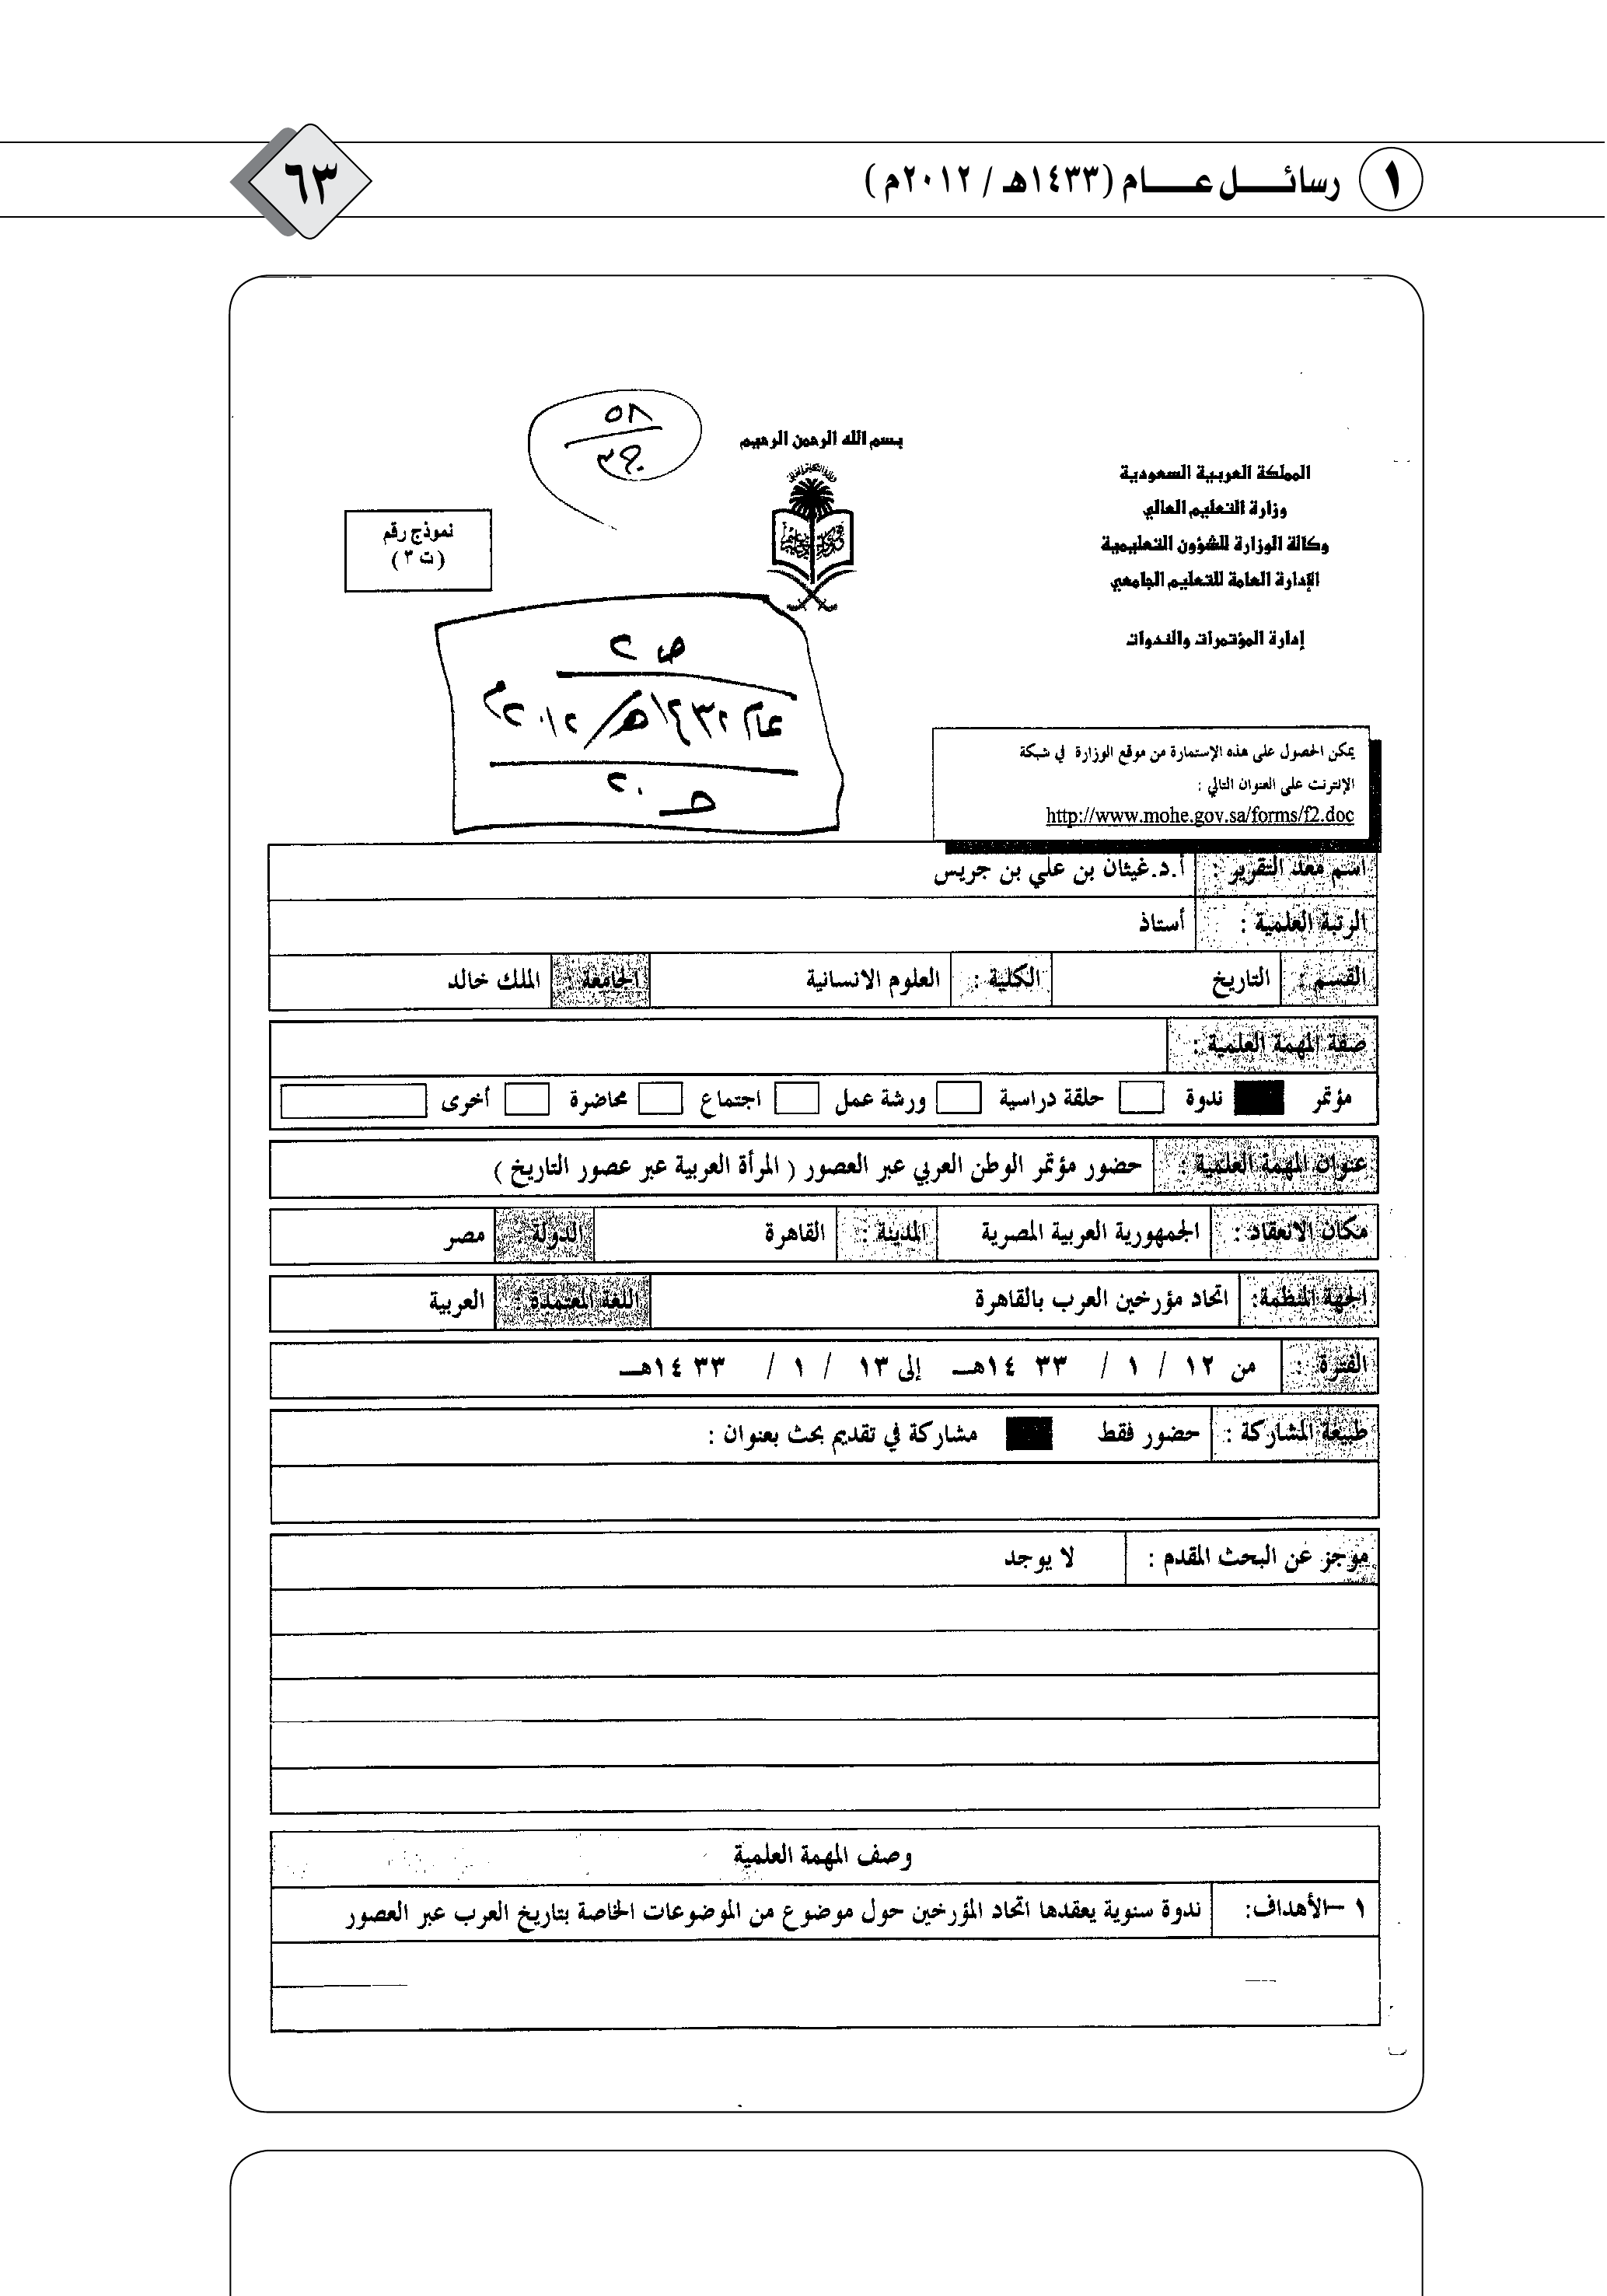 ١ رسائل عام (١٤٣٣هـ / ٢٠١٢م)
٦٣
٥٨
بسم الله الرحمن الرحيم
المملكة العربية السعودية
وزارة التعليم العالي
وكالة الوزارة للشؤون التعليمية
الإدارة العامة للتعليم الجامعي
إدارة المؤتمرات والندوات
نموذج رقم
(ت ٣)
يمكن الحصول على هذه الإستمارة من موقع الوزارة في شبكة
الإنترنت على العنوان التالي :
http://www.mohe.gov.sa/forms/f2.doc
اسم معد التقرير : أ.د.غيثان بن علي بن جريس
الرتبة العلمية : أستاذ
القسم : التاريخ الكلية : العلوم الانسانية الجامعة الملك خالد
صفة المهمة العلمية :
مؤتمر ندوة حلقة دراسية ورشة عمل اجتماع محاضرة أخرى
عنوان المهمة العلمية : حضور مؤتمر الوطن العربي عبر العصور ( المرأة العربية عبر عصور التاريخ )
مكان الانعقاد : الجمهورية العربية المصرية المدينة : القاهرة الدولة : مصر
الجهة المنظمة: اتحاد مؤرخين العرب بالقاهرة اللغة المعتمدة : العربية
الفترة : من ١٢ / ١ / ٣٣ ١٤هـ إلى ١٣ / ١ / ٣٣ ١٤هـ
طبيعة المشاركة : حضور فقط مشاركة في تقديم بحث بعنوان :
موجز عن البحث المقدم : لا يوجد
وصف المهمة العلمية
١ –الأهداف: ندوة سنوية يعقدها اتحاد المؤرخين حول موضوع من الموضوعات الخاصة بتاريخ العرب عبر العصور